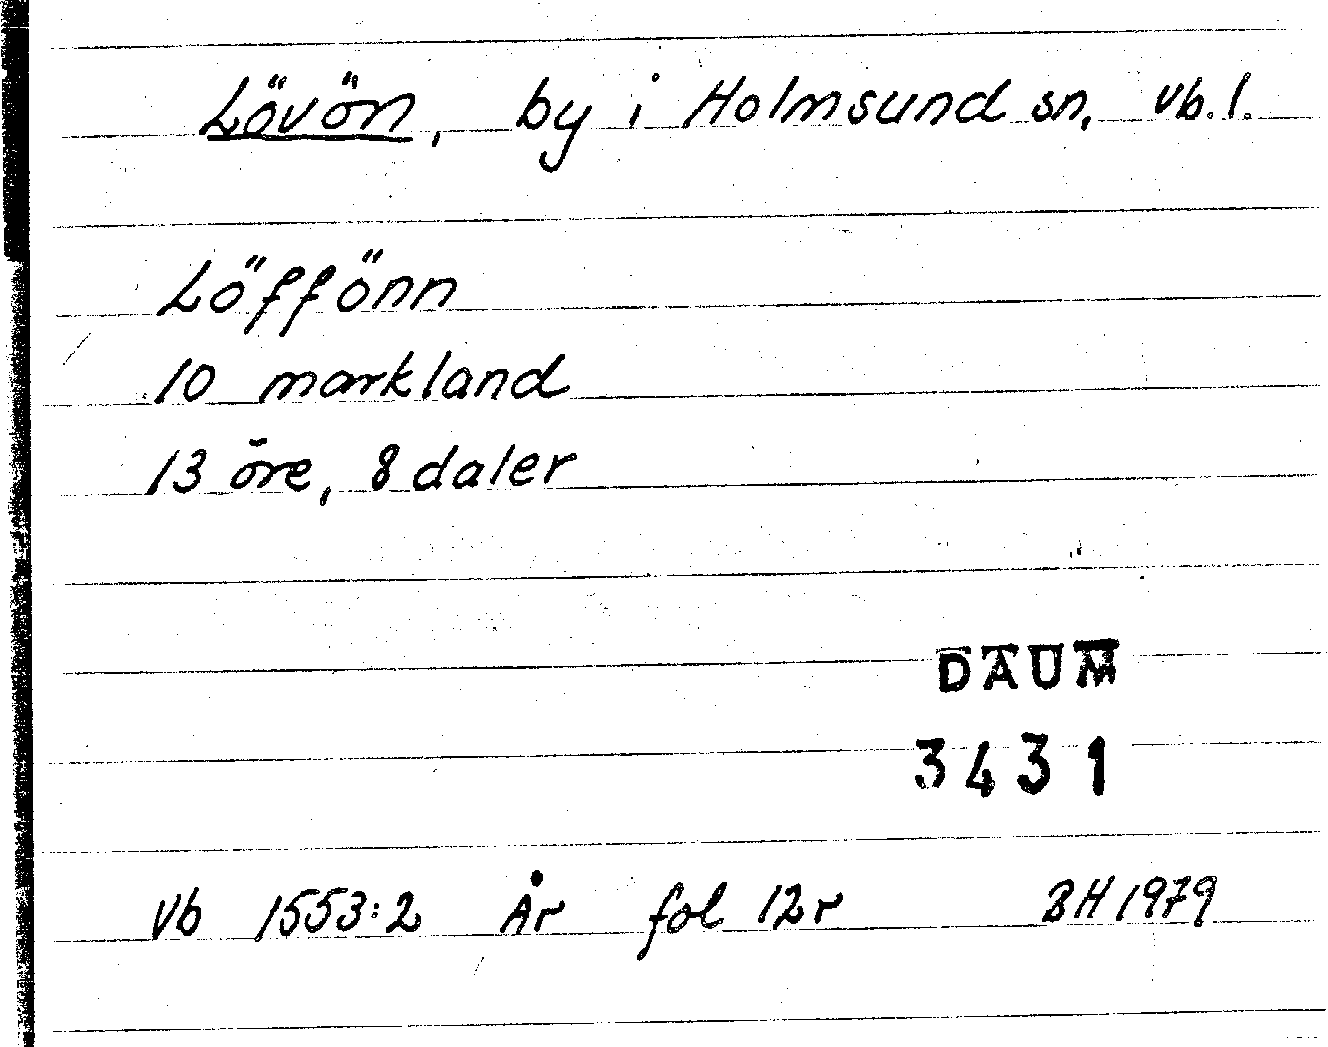 Lövön, by i Holmsund sn, vb.l.
Löffönn
10 markland
13 öre, 8 daler
DAUM
3431
Vb 1553:2 År fol 12r BH 1979